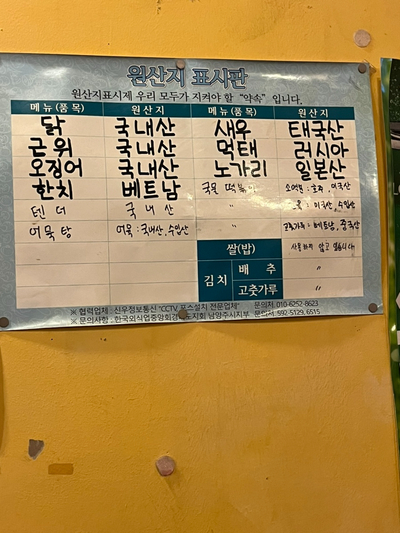 원산지 표시판
원산지표시제 우리 모두가 지켜야 할 "약속" 입니다.
메뉴(품목) 원산지 메뉴(품목) 원산지
닭 국내산 새우 태국산
근위 국내산 먹태 러시아
오징어 국내산 노가리 일본산
한치 베트남 국물 떡볶이 소고기: 호주, 미국산
텐더 국내산 〃 : 미국산, 수입산
어묵탕 어묵: 국내산, 수입산 〃 고춧가루: 베트남, 중국산
쌀(밥) 사용하지 않고 있습니다
김치 배추 〃
고춧가루 〃
※ 협력업체 : 신우정보통신 "CCTV, 포스설치 전문업체" 문의처: 010-6252-8623
※ 문의사항 : 한국외식업중앙회 남양주시지부 문의처: 592-5129, 6515